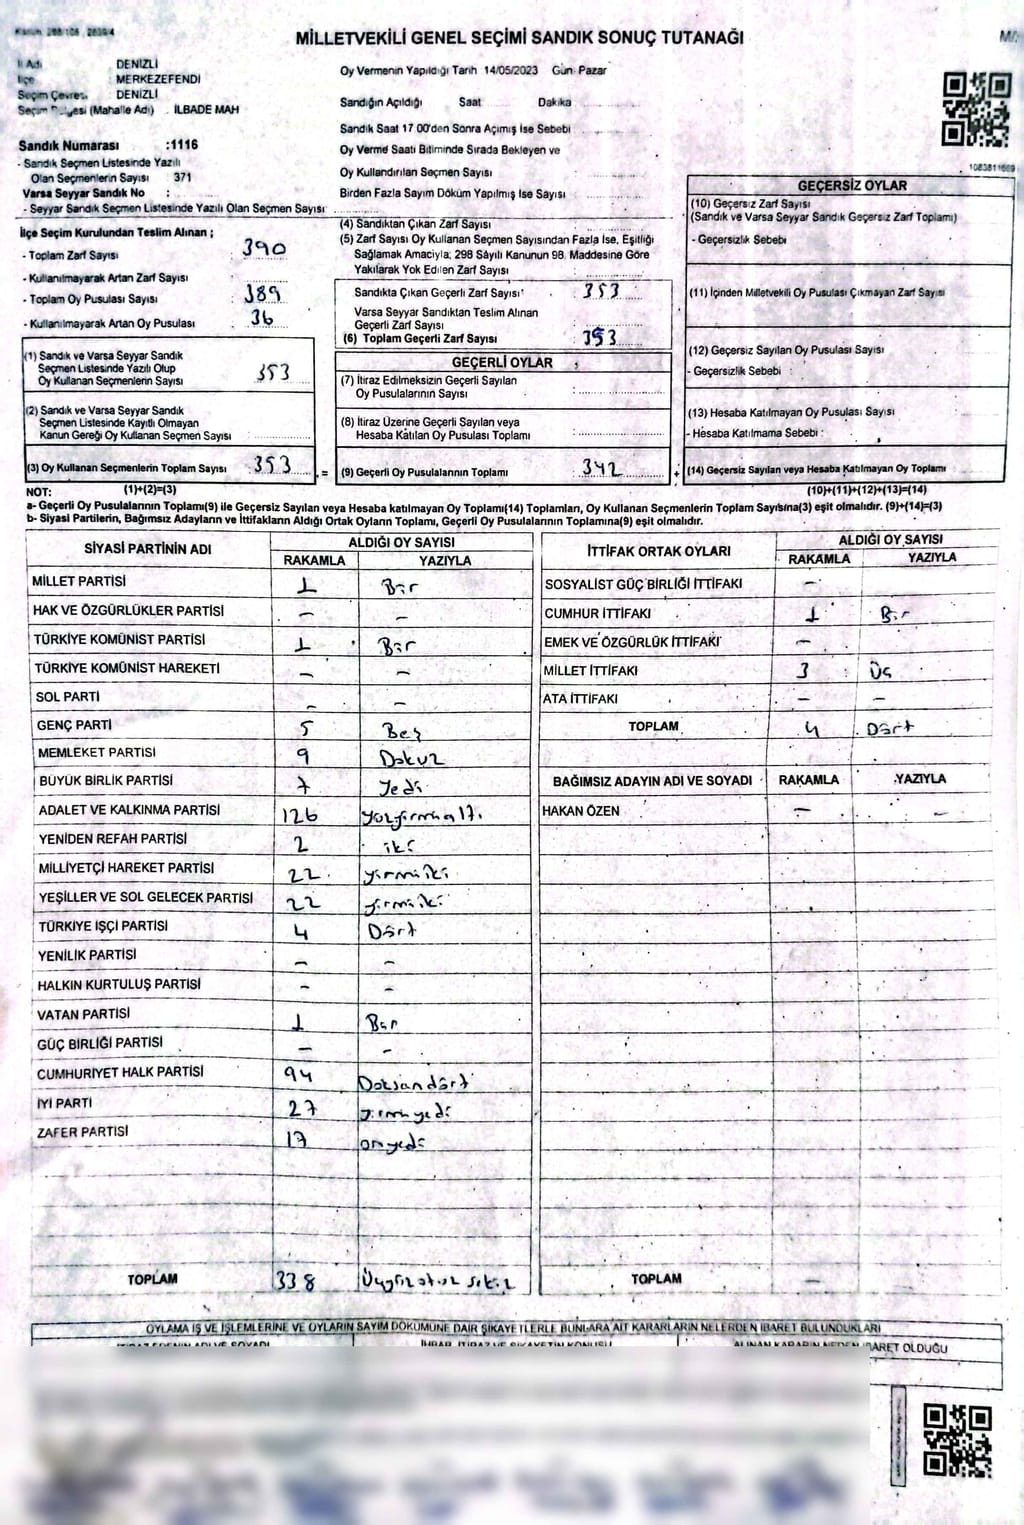 MİLLETVEKİLİ GENEL SEÇİMİ SANDIK SONUÇ TUTANAĞI
İl Adı DENİZLİ
İlçe MERKEZEFENDİ
Seçim Çevresi DENİZLİ
(Mahalle Adı) . İLBADE MAH
Oy Vermenin Yapıldığı Tarih 14/05/2023 Gün Pazar
Sandığın Açıldığı Saat Dakika
Sandık Saat 17 00'den Sonra Açımış İse Sebebi
Oy Verme Saati Bitiminde Sırada Bekleyen ve
Oy Kullandırılan Seçmen Sayısı
Birden Fazla Sayım Döküm Yapılmış İse Sayısı
Sandık Numarası :1116
- Sandık Seçmen Listesinde Yazılı
Olan Seçmenlerin Sayısı : 371
Varsa Seyyar Sandık No :
- Seyyar Sandık Seçmen Listesinde Yazılı Olan Seçmen Sayısı
İlçe Seçim Kurulundan Teslim Alınan ;
- Toplam Zarf Sayısı : 390
- Kullanılmayarak Artan Zarf Sayısı :
- Toplam Oy Pusulası Sayısı : 389
- Kullanılmayarak Artan Oy Pusulası : 36
(1) Sandık ve Varsa Seyyar Sandık
Seçmen Listesinde Yazılı Olup
Oy Kullanan Seçmenlerin Sayısı 353
(2) Sandık ve Varsa Seyyar Sandık
Seçmen Listesinde Kayıtlı Olmayan
Kanun Gereği Oy Kullanan Seçmen Sayısı
(3) Oy Kullanan Seçmenlerin Toplam Sayısı : 353
(1)+(2)=(3)
(4) Sandıktan Çıkan Zarf Sayısı
(5) Zarf Sayısı Oy Kullanan Seçmen Sayısından Fazla İse, Eşitliği
Sağlamak Amacıyla; 298 Sayılı Kanunun 98. Maddesine Göre
Yakılarak Yok Edilen Zarf Sayısı :
Sandıkta Çıkan Geçerli Zarf Sayısı : 353
Varsa Seyyar Sandıktan Teslim Alınan
Geçerli Zarf Sayısı :
(6) Toplam Geçerli Zarf Sayısı : 353
GEÇERLİ OYLAR
(7) İtiraz Edilmeksizin Geçerli Sayılan
Oy Pusulalarının Sayısı :
(8) İtiraz Üzerine Geçerli Sayılan veya
Hesaba Katılan Oy Pusulası Toplamı :
= (9) Geçerli Oy Pusulalarının Toplamı : 342 +
1083811669
GEÇERSİZ OYLAR
(10) Geçersiz Zarf Sayısı
(Sandık ve Varsa Seyyar Sandık Geçersiz Zarf Toplamı)
- Geçersizlik Sebebi
(11) İçinden Milletvekili Oy Pusulası Çıkmayan Zarf Sayısı
(12) Geçersiz Sayılan Oy Pusulası Sayısı
- Geçersizlik Sebebi :
(13) Hesaba Katılmayan Oy Pusulası Sayısı
- Hesaba Katılmama Sebebi :
(14) Geçersiz Sayılan veya Hesaba Katılmayan Oy Toplamı
(10)+(11)+(12)+(13)=(14)
NOT:
a- Geçerli Oy Pusulalarının Toplamı(9) ile Geçersiz Sayılan veya Hesaba katılmayan Oy Toplamı(14) Toplamları, Oy Kullanan Seçmenlerin Toplam Sayısına(3) eşit olmalıdır. (9)+(14)=(3)
b- Siyasi Partilerin, Bağımsız Adayların ve İttifakların Aldığı Ortak Oyların Toplamı, Geçerli Oy Pusulalarının Toplamına(9) eşit olmalıdır.
SİYASİ PARTİNİN ADI ALDIĞI OY SAYISI
RAKAMLA YAZIYLA
MİLLET PARTİSİ 1 Bir
HAK VE ÖZGÜRLÜKLER PARTİSİ - -
TÜRKİYE KOMÜNİST PARTİSİ 1 Bir
TÜRKİYE KOMÜNİST HAREKETİ - -
SOL PARTİ - -
GENÇ PARTİ 5 Beş
MEMLEKET PARTİSİ 9 Dokuz
BÜYÜK BİRLİK PARTİSİ 7 Yedi
ADALET VE KALKINMA PARTİSİ 126 yüzyirmialtı
YENİDEN REFAH PARTİSİ 2 iki
MİLLİYETÇİ HAREKET PARTİSİ 22 yirmiiki
YEŞİLLER VE SOL GELECEK PARTİSİ 22 yirmiiki
TÜRKİYE İŞÇİ PARTİSİ 4 Dört
YENİLİK PARTİSİ - -
HALKIN KURTULUŞ PARTİSİ - -
VATAN PARTİSİ 1 Bir
GÜÇ BİRLİĞİ PARTİSİ - -
CUMHURİYET HALK PARTİSİ 94 Doksandört
İYİ PARTİ 27 yirmiyedi
ZAFER PARTİSİ 17 onyedi
TOPLAM 338 Üçyüzotuzsekiz
İTTİFAK ORTAK OYLARI ALDIĞI OY SAYISI
RAKAMLA YAZIYLA
SOSYALİST GÜÇ BİRLİĞİ İTTİFAKI -
CUMHUR İTTİFAKI 1 Bir
EMEK VE ÖZGÜRLÜK İTTİFAKI -
MİLLET İTTİFAKI 3 Üç
ATA İTTİFAKI - -
TOPLAM 4 Dört
BAĞIMSIZ ADAYIN ADI VE SOYADI RAKAMLA YAZIYLA
HAKAN ÖZEN - -
TOPLAM -
OYLAMA İŞ VE İŞLEMLERİNE VE OYLARIN SAYIM DÖKÜMÜNE DAİR ŞİKAYETLERLE BUNLARA AİT KARARLARIN NELERDEN İBARET BULUNDUKLARI